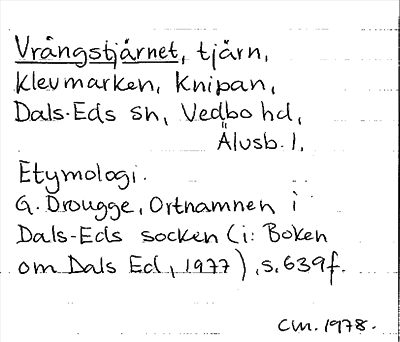 Vrångstjärnet, tjärn,
Klevmarken, Knipan,
Dals-Eds sn, Vedbo hd,
Älvsb. l.
Etymologi.
G. Drougge, Ortnamnen i
Dals-Eds socken (i: Boken
om Dals Ed, 1977), s. 639f.
CM. 1978.